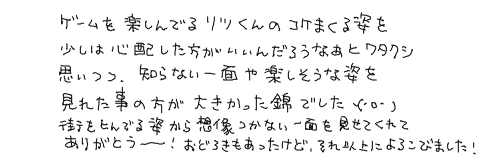 ゲームを楽しんでるリツくんのコケまくる姿を
少しは心配した方がいいんだろうなあとワタクシ
思いつつ、知らない一面や楽しそうな姿を
見れた事の方が大きかった錦でした
街をとんでる姿から想像つかない一面を見せてくれて
ありがとう〜！おどろきもあったけど、それ以上によろこびました！